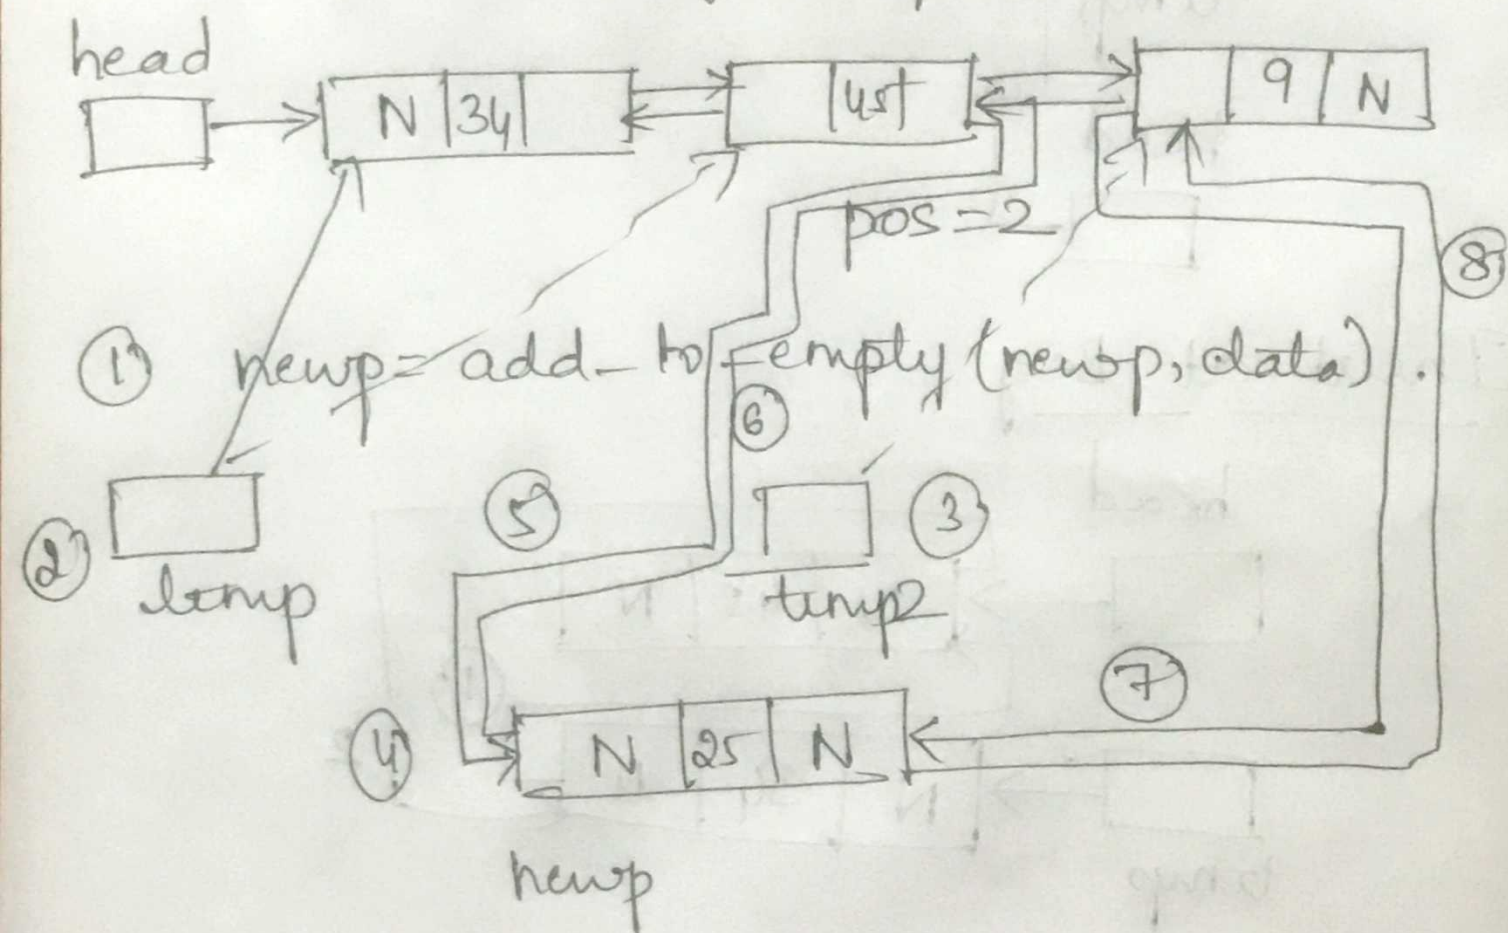 head
N 34 45 9 N
pos=2
8
1 newp= add_to_empty (newp, data).
6
5 3
2
temp temp2
7
4 N 25 N
newp